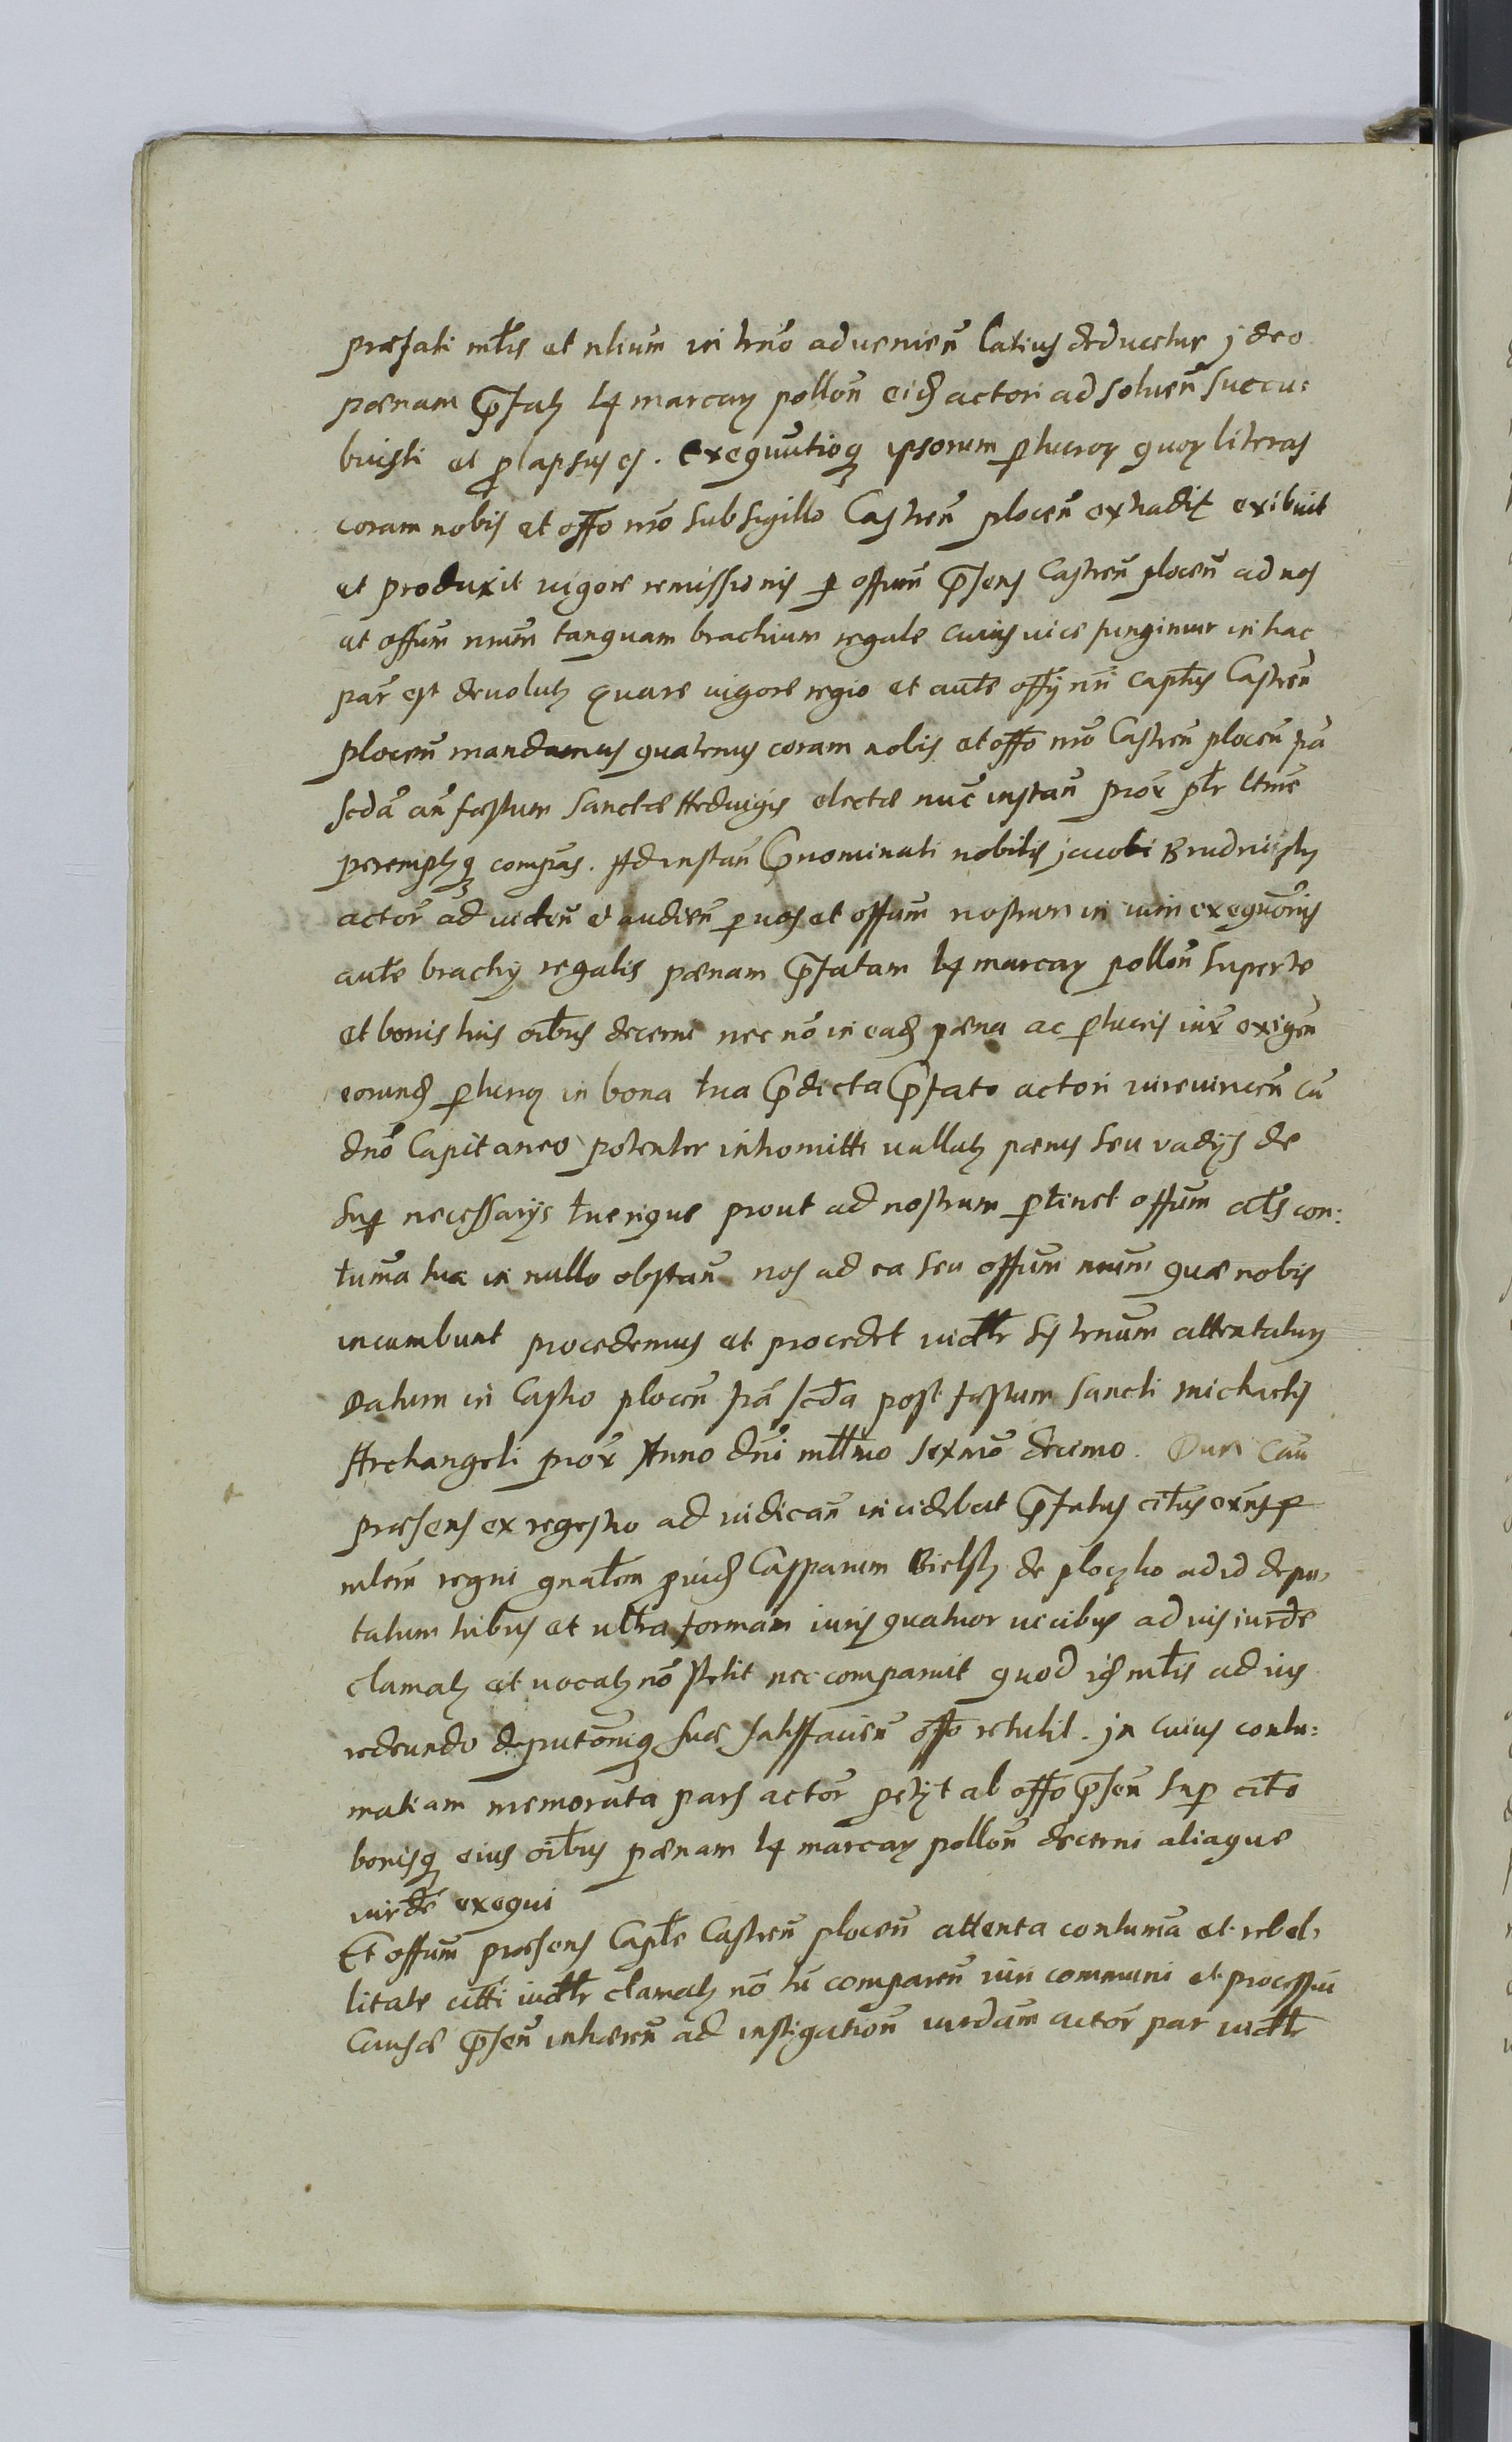 præfati mtris et alium in trno aduenien̄ latius deducetur ideo
pœnam p̄fatӡ 14 marcaꝝ pollon̄ eidꝫ actori ad soluen̄ succu:
buisti et ꝓlapsus es. Exequutioqꝫ ipsorum ꝑlucroꝝ quoꝝ literas
coram nobis et offo nr̄o sub sigillo Castren̄ plocen̄ extradit̄ exibuit
et produxit vigore remissionis ꝑ offum̄ p̄sens Castren̄ plocen̄ ad nos
et offum nrum̄ tanquam brachium regale cuius uice fungimur in hac
par̄ est deuolutӡ quare uigore regio et aut̄te offy nr̄i cap̄tus Castren̄
plocen̄ mandamus quatenus coram nobis et offo nr̄o Castren̄ plocen̄ fr̄a
scda an̄ fæstum Sanctæ Heduigis electæ nuc̄ instan̄ prox̄ pt̄r ltme
peremptӡqꝫ compas. Ad instan̄ p̄nominati nobilis Jacobi Brudnisky
actor̄ ad uiden̄ et audien̄ ꝑ nos et offum̄ nostrum in uim exequōnis
aut̄te brachy regalis pœnam p̄fatam 14 marcaꝝ pollon̄ super te
et bonis tuis oībus decerni nec nō in eadꝫ pœna ac ꝑlucris iur̄ exigen̄
eorundꝫ ꝑlucroꝝ in bona tua p̄dicta p̄fato actori iureuincen̄ cū
dnō Capitaneo potenter intromitti uallatӡ pœnis seu vadijs de
suꝑ necessarijs tuerique prout ad nostrum ꝑtinet offum cit̄s con:
tuma tua in nullo obstan̄ nos ad ea seu offum̄ nrum̄ quæ nobis
incumbunt procedemus et procedet iudtr̄ sis trnum attentatuꝝ
Datum in Castro plocen̄ fr̄a scda post fæstum Sancti Michaelis
Archangeli prox̄ Anno dnī mlt̄mo sexmo decimo. Qui Cau
præsens ex regestro ad iudican̄ incidebat p̄fatus citatus exns ꝑ
mlem̄ regni gnat̄em ꝓuidꝫ Casparum Bielsky de ploczko ad id depu,
tatum tribus et ultra formam iuris quatuor uicibus ad ius iurde
clamatӡ et uocatӡ nō stetit nec comparuit quod idꝫ mtris ad ius
redeundo deputōniqꝫ suæ satisfacien̄ offo retulit. In cuius contu:
matiam memorata pars actor̄ petijt ab offo p̄sen̄ suꝑ cit̄o
bonisqꝫ eius oībus pœnam 14 marcaꝝ pollon̄ decerni aliaque
iurde exequi
Et offum̄ præsens Capt̄le Castren̄ plocen̄ attenta contuma et rebel,
litate citt̄i iudtr̄ clamatӡ nō tū comparen̄ iuri communi et processui
Causæ p̄sen̄ inhæren̄ ad instigationem̄ iurdam̄ actor̄ par iudtr̄